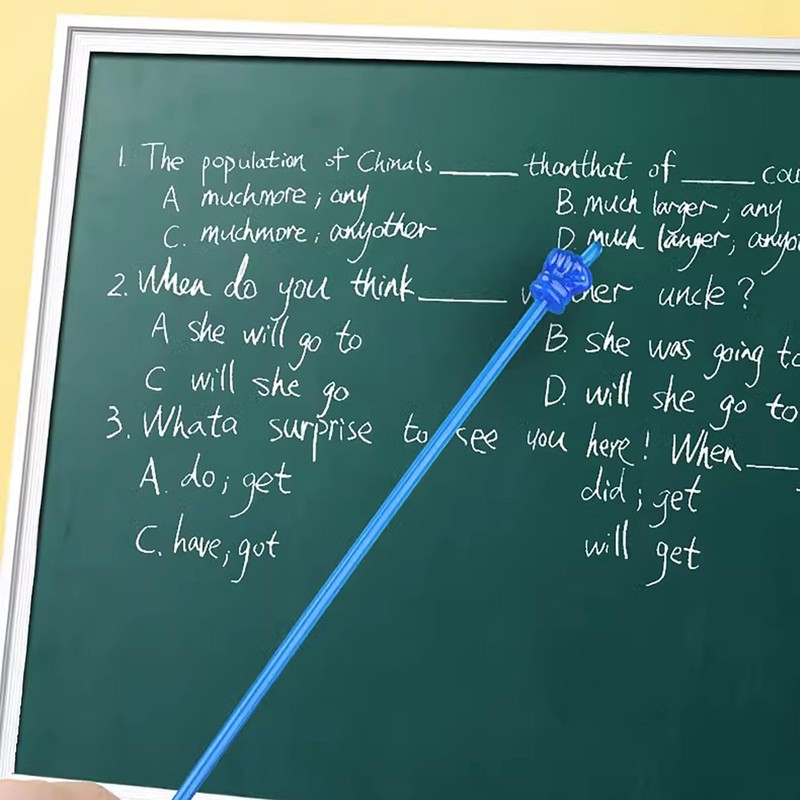 1. The population of Chinals ____ thanthat of ____ cou
A muchmore; any B. much larger; any
C. muchmore; anyother D. much langer; anyot
2. When do you think ____ her uncle?
A she will go to B. she was going to
C will she go D. will she go to
3. Whata surprise to see you here! When ____
A. do; get did; get
C. have; got will get